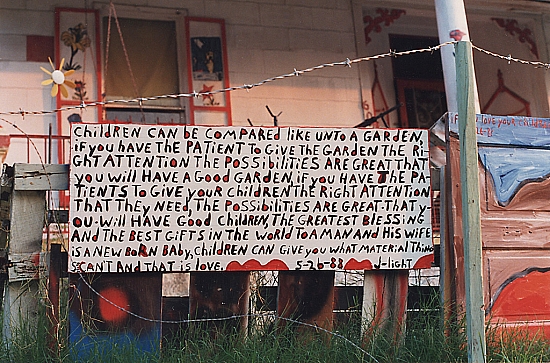 CHILDREN CAN BE COMPARED LIKE UNTO A GARDEN,
IF YOU HAVE THE PATIENT TO GIVE THE GARDEN THE RI-
GHT ATTENTION THE POSSIBILITIES ARE GREAT THAT
YOU WILL HAVE A GOOD GARDEN, IF YOU HAVE THE PA-
TIENTS TO GIVE YOUR CHILDREN THE RIGHT ATTENTION
THAT THEY NEED, THE POSSIBILITIES ARE GREAT-THAT Y-
OU-WILL HAVE GOOD CHILDREN, THE GREATEST BLESSING
AND THE BEST GIFTS IN THE WORLD TO A MAN AND HIS WIFE
IS A NEW BORN BABY, CHILDREN CAN GIVE YOU WHAT MATERIAL THING
S CAN'T AND THAT IS LOVE. 5-26-88 J-LIGHT
LOVE YOUR CHILDREN